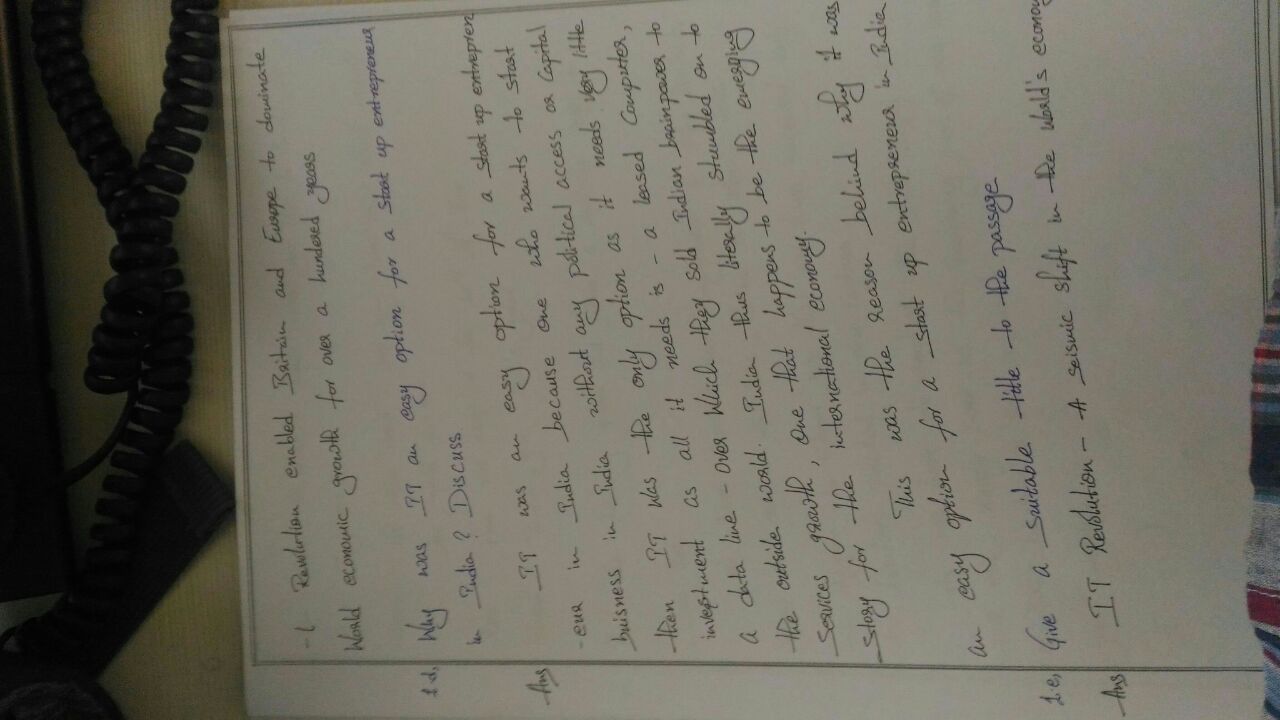 -l Revolution enabled Britain and Europe to dominate
World economic growth for over a hundered years
1.d, Why was IT an easy option for a start up entrepreneur
in India? Discuss
Ans IT was an easy option for a start up entrepren
-eur in India because one who wants to start
buisness in India without any political access or Capital
then IT was the only option as it needs very little
investment as all it needs is - a leased Computer,
a data line - over which they sold Indian brainpower to
the outside world. India thus literally stumbled on to
Services growth, one that happens to be the emerging
story for the international economy.
This was the reason behind why it was
an easy option for a start up entrepreneur in India
1.e, Give a Suitable title to the passage
Ans IT Revolution - A seismic shift in the World's econom